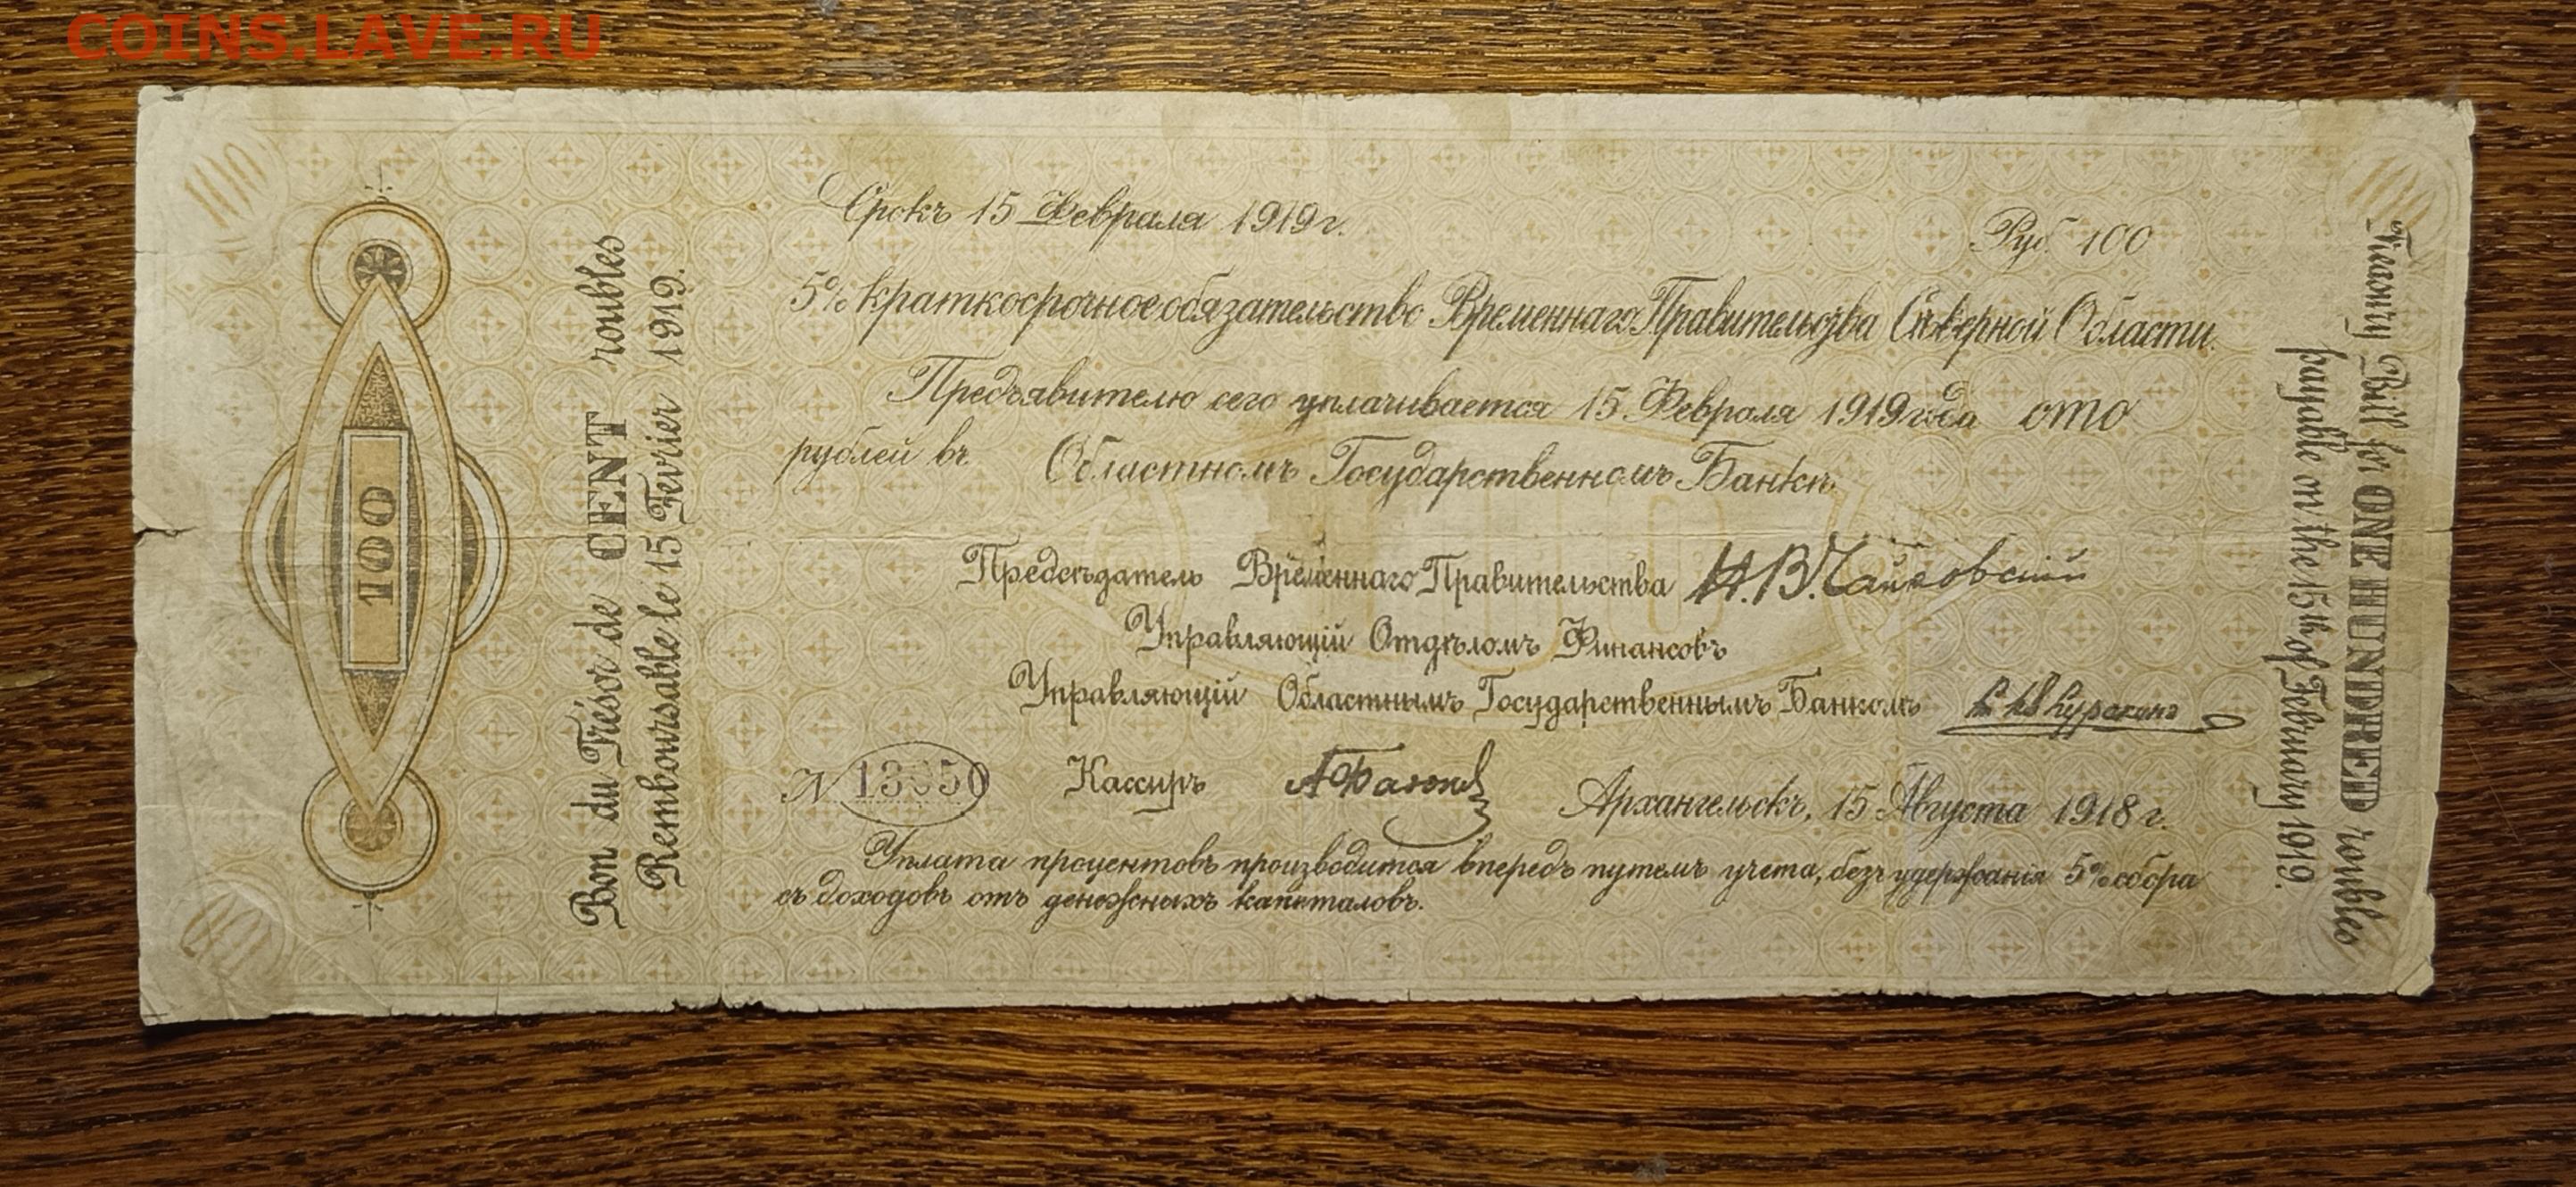 COINS.LAVE.RU
100
100
Срокъ 15 Февраля 1919 г.
Руб. 100
5% краткосрочное обязательство Временнаго Правительства Сѣверной Области.
Предъявителю сего уплачивается 15 Февраля 1919 года сто
рублей въ Областномъ Государственномъ Банкѣ.
Предсѣдатель Временнаго Правительства Н.В.Чайковскій
Управляющій Отдѣломъ Финансовъ
Управляющій Областнымъ Государственнымъ Банкомъ
N
Кассиръ
Архангельскъ, 15 Августа 1918 г.
Уплата процентовъ производится впередъ путемъ учета, безъ удержанія 5% сбора
съ доходовъ отъ денежныхъ капиталовъ.
100
100
Bon du Trésor de CENT roubles
Remboursable le 15 Fevrier 1919.
Treasury Bill for ONE HUNDRED roubles
payable on the 15th of February 1919.